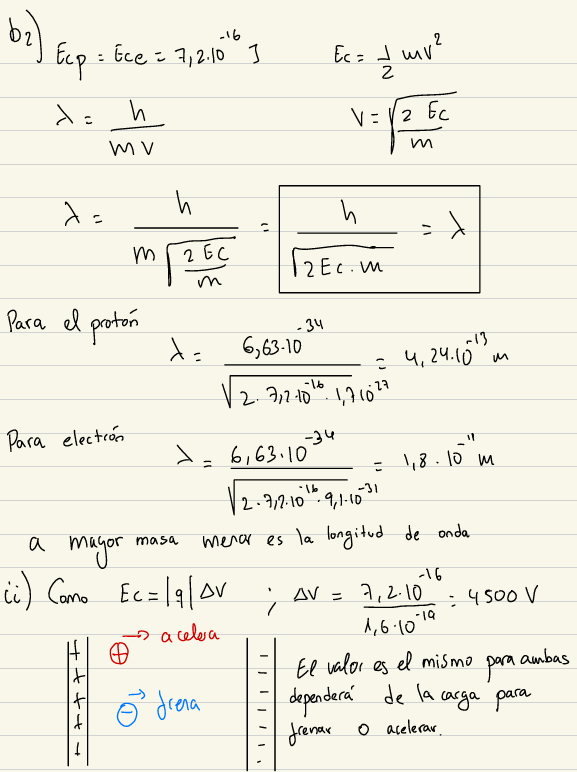 b₂) Ecp = Ece = 7,2.10⁻¹⁶ J    Ec = 1/2 mv²
λ = h / (m v)    V = √(2 Ec / m)
λ = h / (m √(2 Ec / m)) = h / √(2 Ec . m) = λ
Para el protón
λ = 6,63.10⁻³⁴ / √(2 . 7,2.10⁻¹⁶ . 1,7.10⁻²⁷) = 4,24.10⁻¹³ m
Para electrón
λ = 6,63.10⁻³⁴ / √(2.7,2.10⁻¹⁶.9,1.10⁻³¹) = 1,8 . 10⁻¹¹ m
a mayor masa menor es la longitud de onda
ii) Como Ec = |q| ΔV ; ΔV = 7,2.10⁻¹⁶ / 1,6.10⁻¹⁹ = 4500 V
+ + + + +
⊕ → acelera
⊖ → frena
- - - - - - -
El valor es el mismo para ambas
dependerá de la carga para
frenar o acelerar.